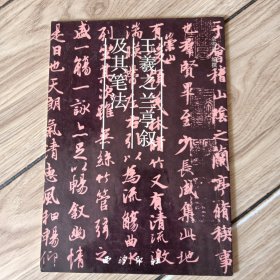 王羲之兰亭叙
及其笔法
于會稽山陰之蘭亭脩稧事
也羣賢畢至少長咸集此地
崇山
有峻領茂林脩竹又有清流激
湍左右引以為流觴曲水
列坐其次雖無絲竹管弦之
盛一觴一詠亦足以暢敘幽情
是日也天朗氣清惠風和暢仰